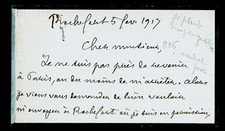 Rochefort 5 fev. 1917
Cher monsieur,
Je ne suis pas près de revenir
à Paris, ou du moins de m'arrêter. Alors
je viens vous demander de bien vouloir
m'envoyer à Rochefort où je suis en permission,